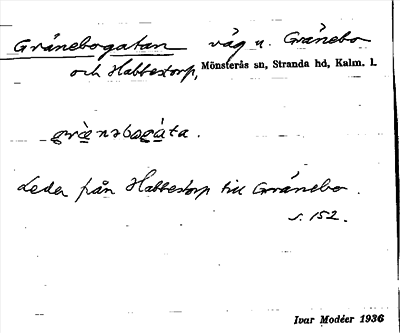 Gränebogatan väg u. Gränebo
och Habbestorp, Mönsterås sn, Stranda hd, Kalm. l.
Leder från Habbestorp till Gränebo.
s. 152.
Ivar Modéer 1936